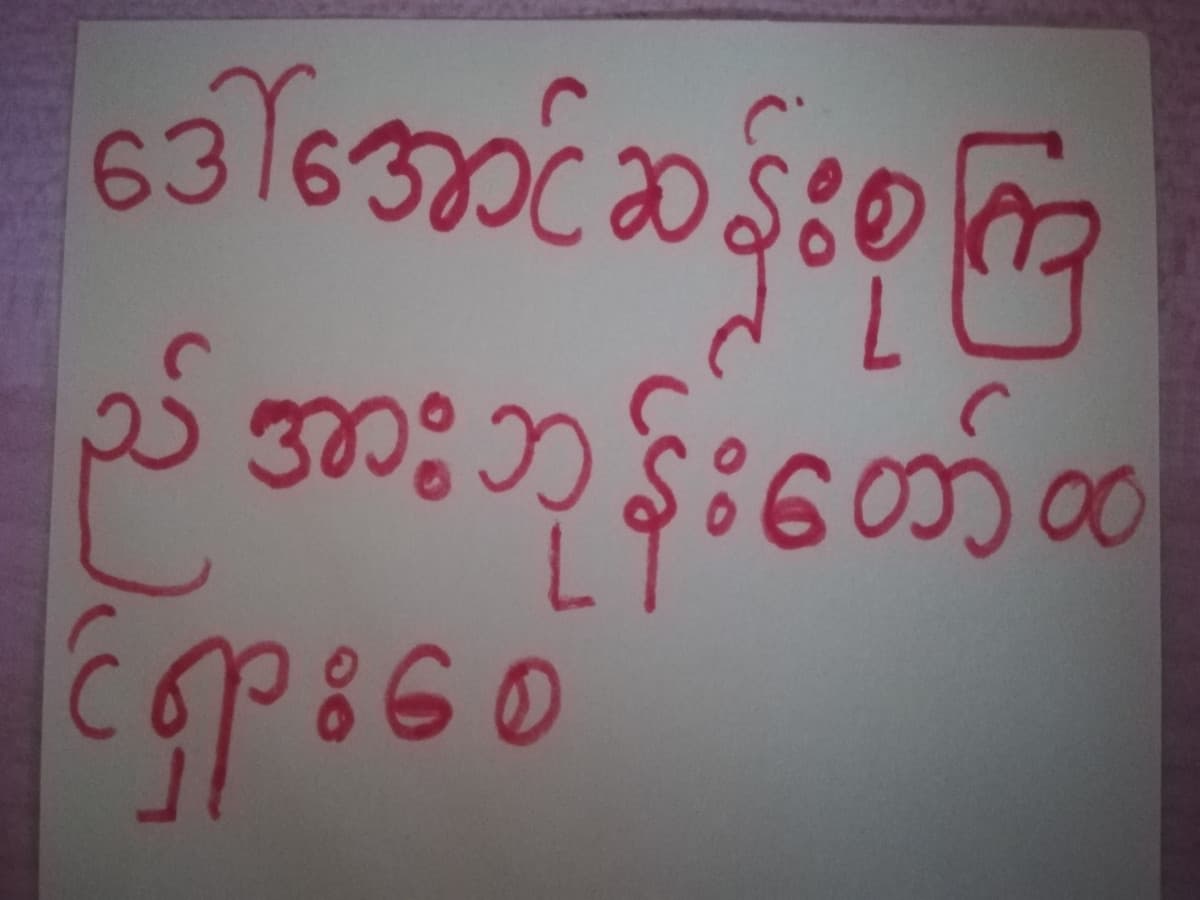 ဒေါ်အောင်ဆန်းစုကြ
ည်အားဘုန်းတော်ထ
င်ရှားစေ